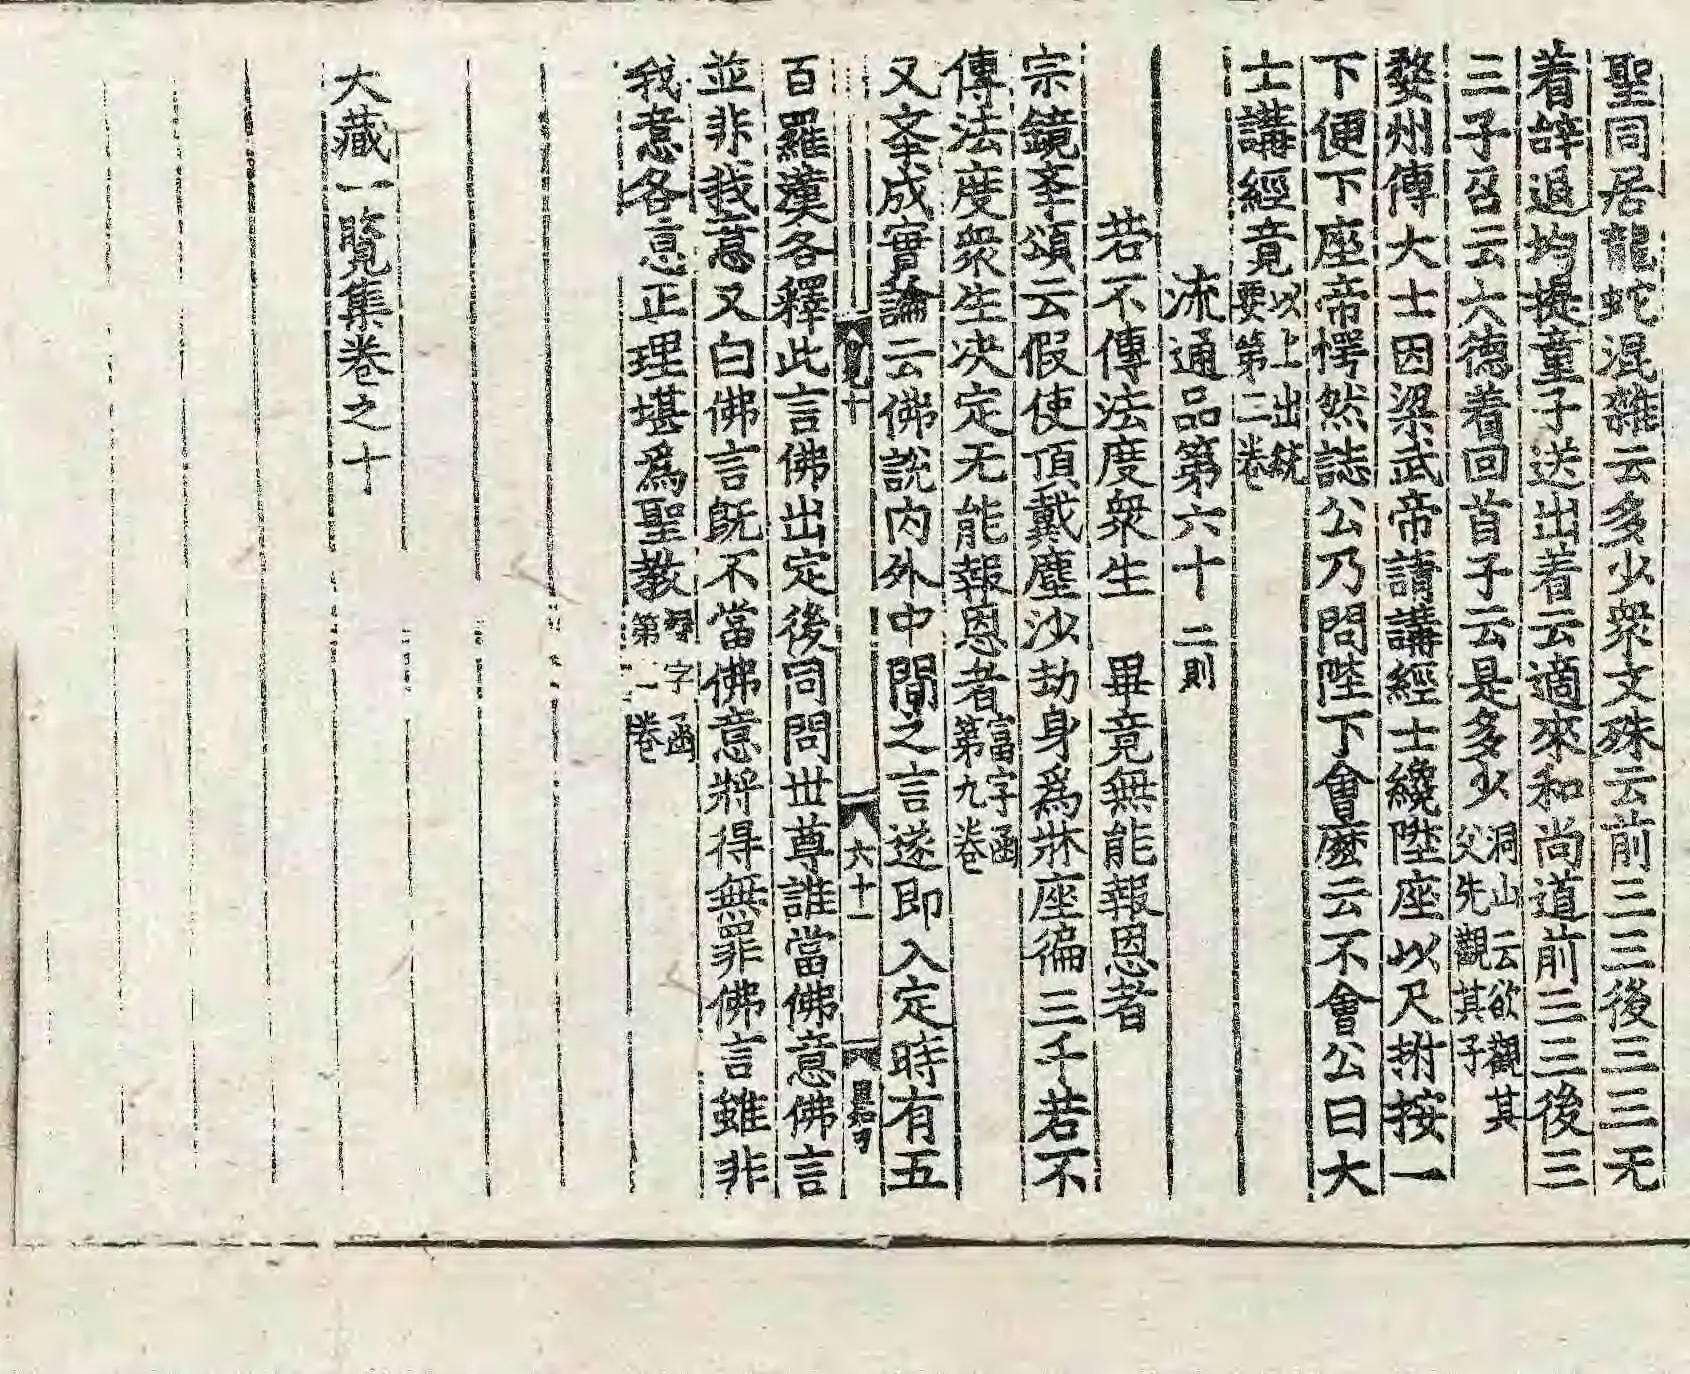 聖同居龍蛇混雜云多少衆文殊云前三三後三三无
着辝退均提童子送出着云適來和尚道前三三後三
三子召云大德着回首子云是多少洞山云欲觀其父先觀其子
婺州傳大士因梁武帝請講經士纔陞座以尺拊按一
下便下座帝愕然誌公乃問陛下會麽云不會公曰大
士講經竟以上出統要第二卷
流通品第六十 二則
若不傳法度衆生 畢竟無能報恩者
宗鏡夲頌云假使頂戴塵沙劫身爲牀座徧三千若不
傳法度衆生決定无能報恩者富字函第九卷
又夲成實論云佛說内外中間之言遂即入定時有五
覽十 六十一
百羅漢各釋此言佛出定後同問丗尊誰當佛意佛言
並非我意又白佛言旣不當佛意將得無罪佛言雖非
我意各意正理堪爲聖教字函第一卷
大藏一覽集卷之十